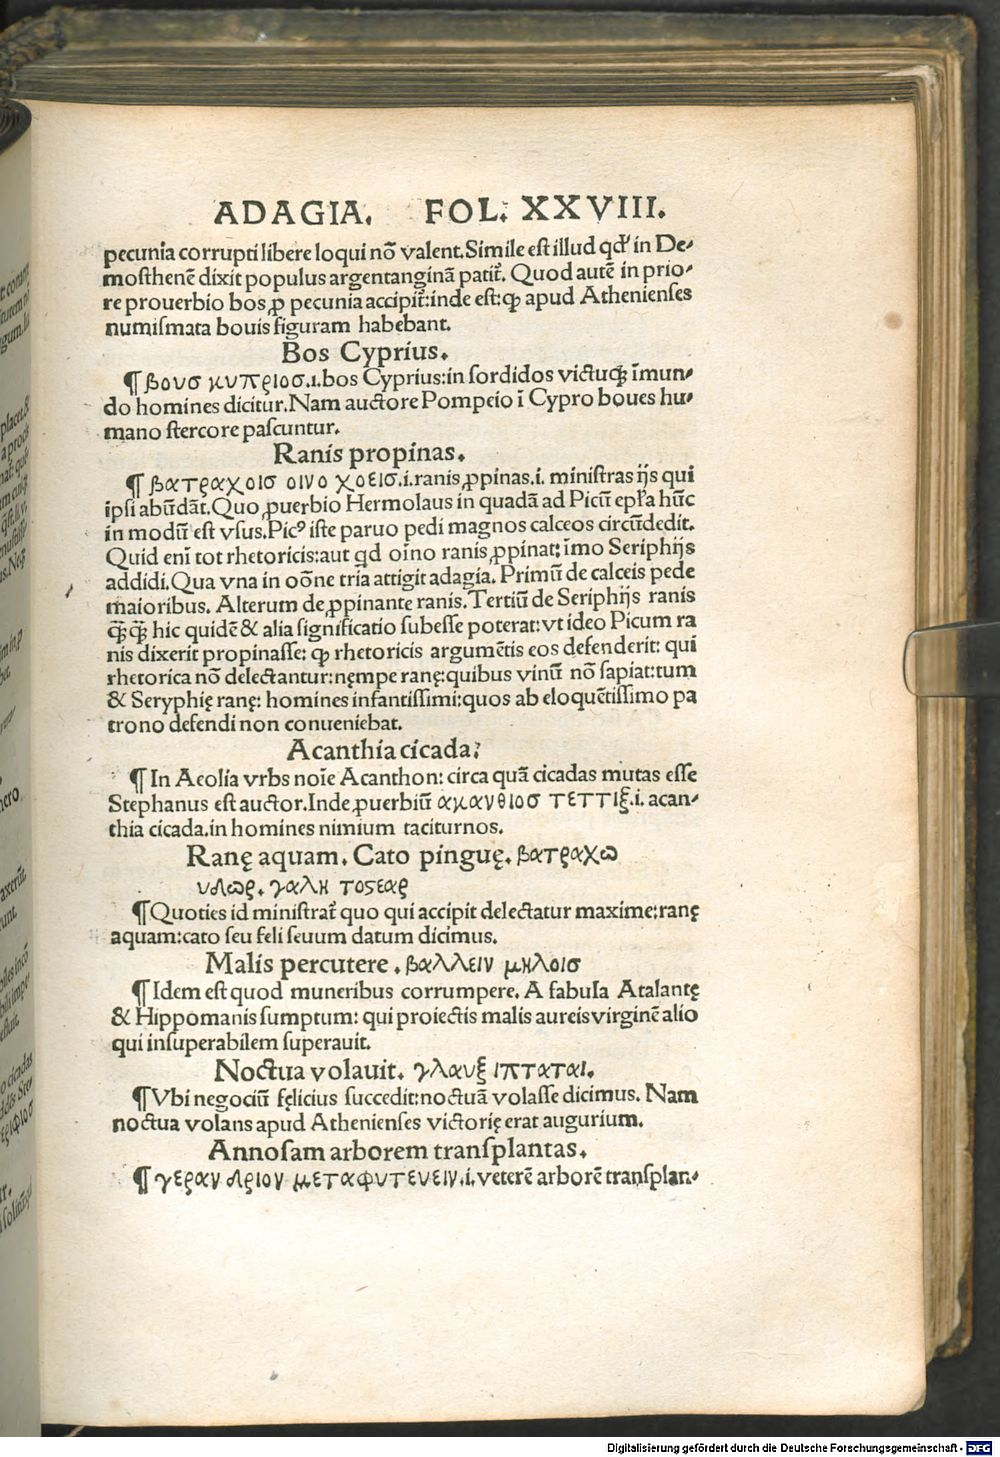 ADAGIA. FOL. XXVIII.
pecunia corrupti libere loqui nõ valent. Simile est illud qđ in De-
mosthenẽ dixit populus argentanginã patit̃. Quod autẽ in prio-
re prouerbio bos ꝓ pecunia accipit̃: inde est: ꝙ apud Athenienses
numismata bouis figuram habebant.
Bos Cyprius.
¶ βουσ κυπριοσ .i. bos Cyprius: in sordidos victuqꝫ ĩmun-
do homines dicitur. Nam auctore Pompeio ĩ Cypro boues hu-
mano stercore pascuntur.
Ranis propinas.
¶ βατραχοισ οινο χοεισ .i. ranis ꝓpinas .i. ministras ijs qui
ipsi abũdãt. Quo ꝓuerbio Hermolaus in quadã ad Picũ epła hũc
in modũ est vsus. Picꝰ iste paruo pedi magnos calceos circũdedit.
Quid eni tot rhetoricis: aut qd oino ranis ꝓpinat: ĩmo Seriphijs
addidi. Qua vna in oõne tria attigit adagia. Primũ de calceis pede
maioribus. Alterum de ꝓpinante ranis. Tertiũ de Seriphijs ranis
qꝫ̃qꝫ̃ hic quidẽ & alia significatio subesse poterat: vt ideo Picum ra
nis dixerit propinasse: ꝙ rhetoricis argumẽtis eos defenderit: qui
rhetorica nõ delectantur: nęmpe ranę: quibus vinũ nõ sapiat: tum
& Seryphię ranę: homines infantissimi: quos ab eloquẽtissimo pa
trono defendi non conueniebat.
Acanthia cicada:
¶ In Aeolia vrbs noĩe Acanthon: circa quã cicadas mutas esse
Stephanus est auctor. Inde ꝓuerbiũ ακανθιοσ τεττιξ .i. acan-
thia cicada. in homines nimium taciturnos.
Ranę aquam. Cato pinguę. βατραχω
υδωρ. γαλη τοστεαρ
¶ Quoties id ministrat̃ quo qui accipit delectatur maxime: ranę
aquam: cato seu feli seuum datum dicimus.
Malis percutere. βαλλειν μηλοισ
¶ Idem est quod muneribus corrumpere. A fabula Atalantę
& Hippomanis sumptum: qui proiectis malis aureis virginẽ alio
qui insuperabilem superauit.
Noctua volauit. γλαυξ ιπταται.
¶ Vbi negociũ fęlicius succedit: noctuã volasse dicimus. Nam
noctua volans apud Athenienses victorię erat augurium.
Annosam arborem transplantas.
¶ γεραν δριον μεταφυτευειν .i. veterẽ arborẽ transplan-
Digitalisierung gefördert durch die Deutsche Forschungsgemeinschaft - DFG